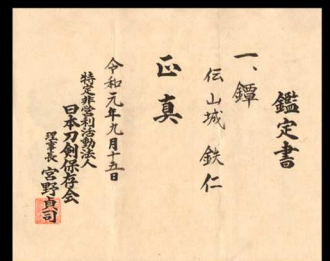 鑑定書
一、鐔
伝山城 鉄仁
正真
令和元年九月十五日
特定非営利活動法人
日本刀剣保存会
理事長 宮野貞司